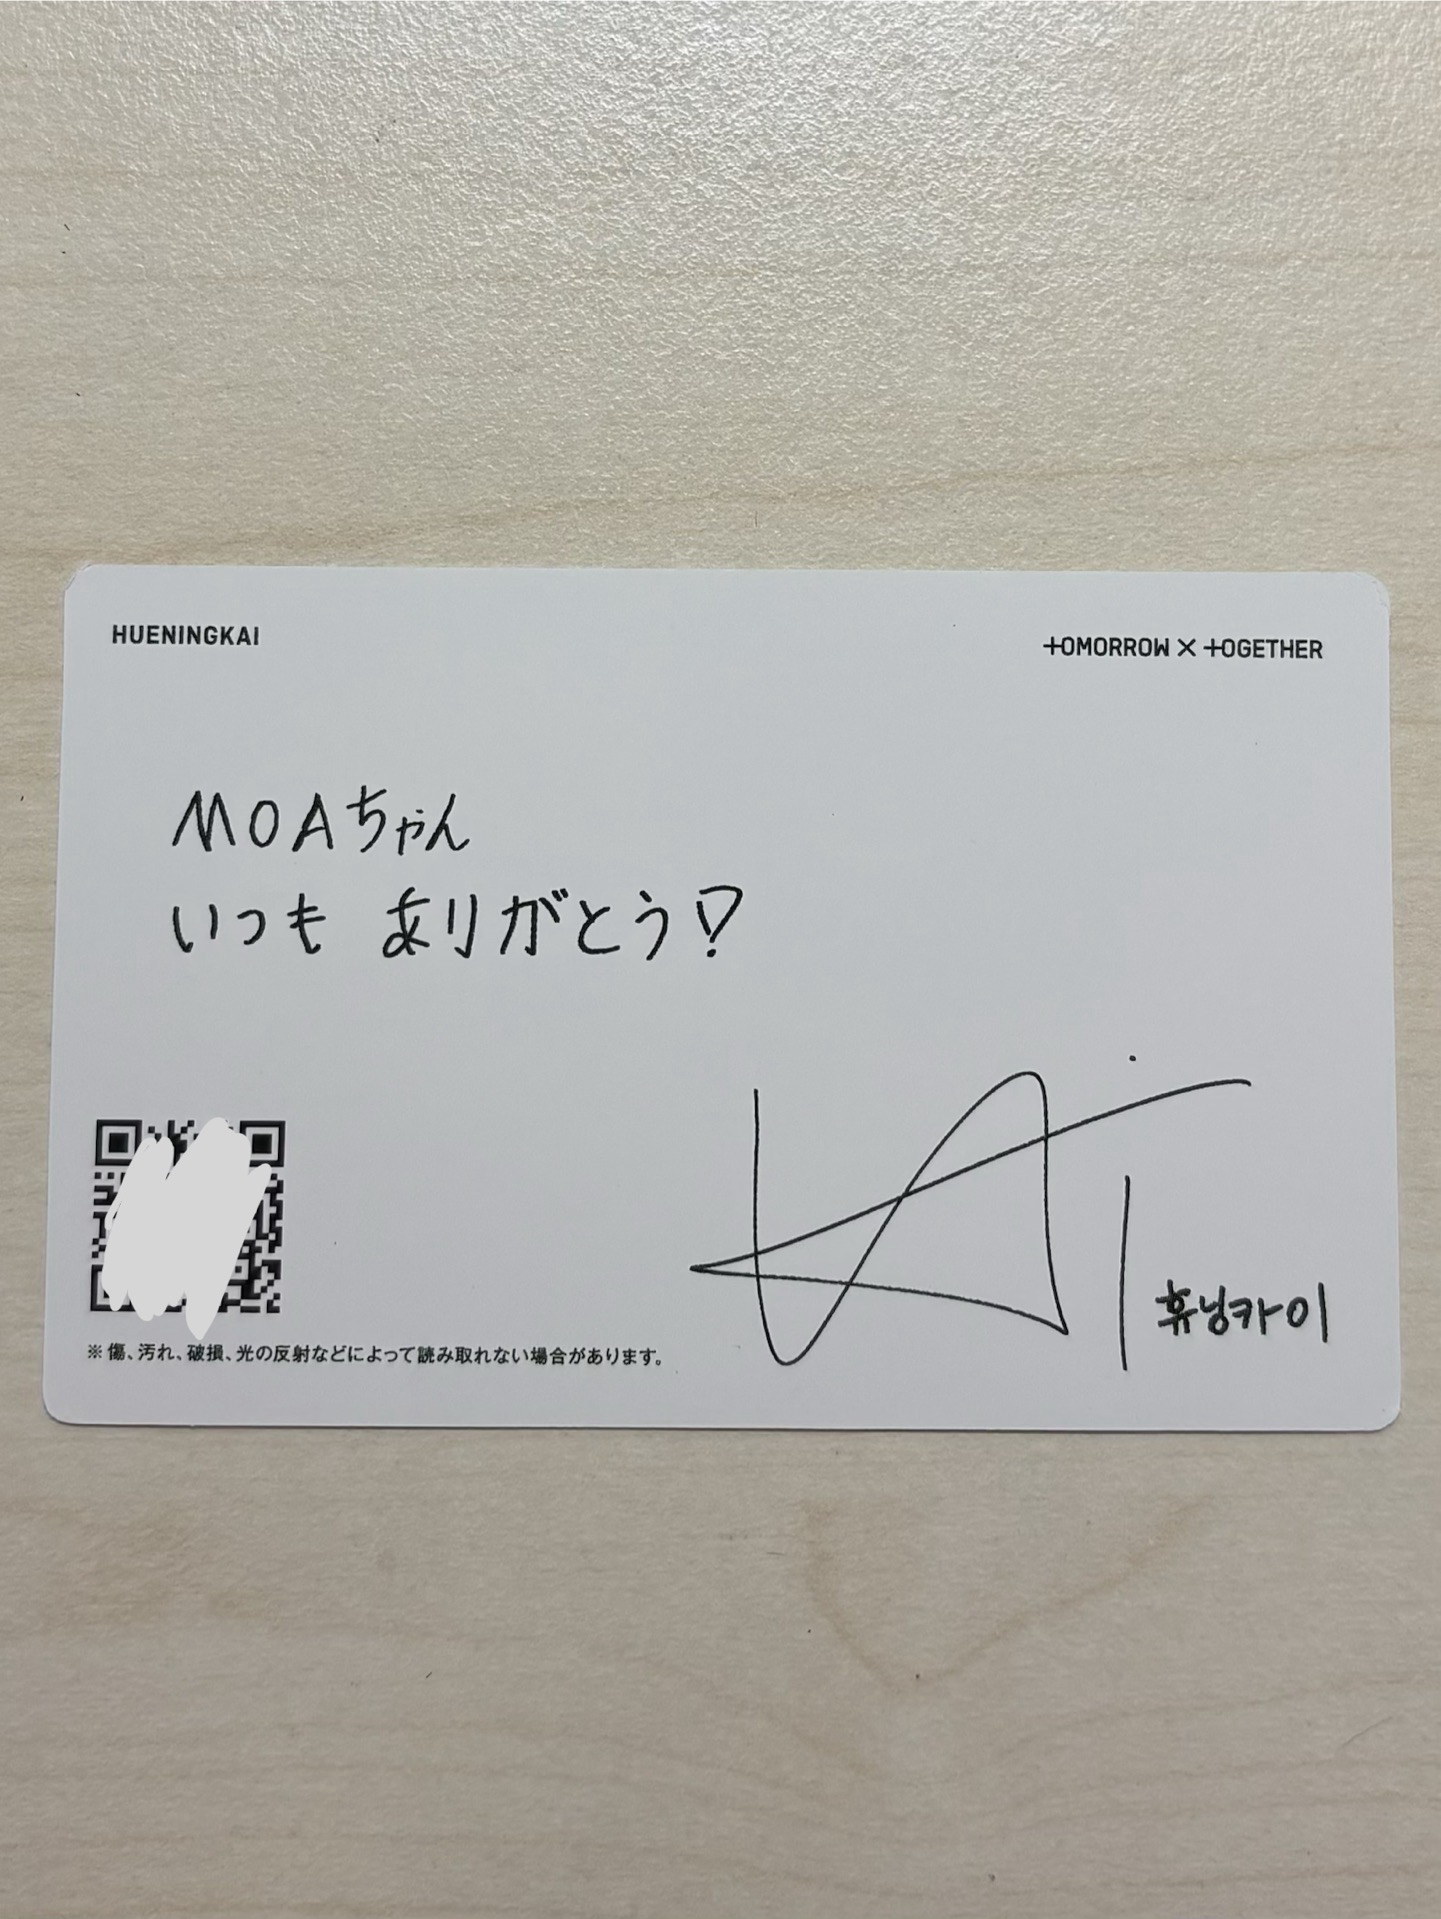 HUENINGKAI
TOMORROW X TOGETHER
MOAちゃん
いつも ありがとう!
KAi
휴닝카이
※傷、汚れ、破損、光の反射などによって読み取れない場合があります。